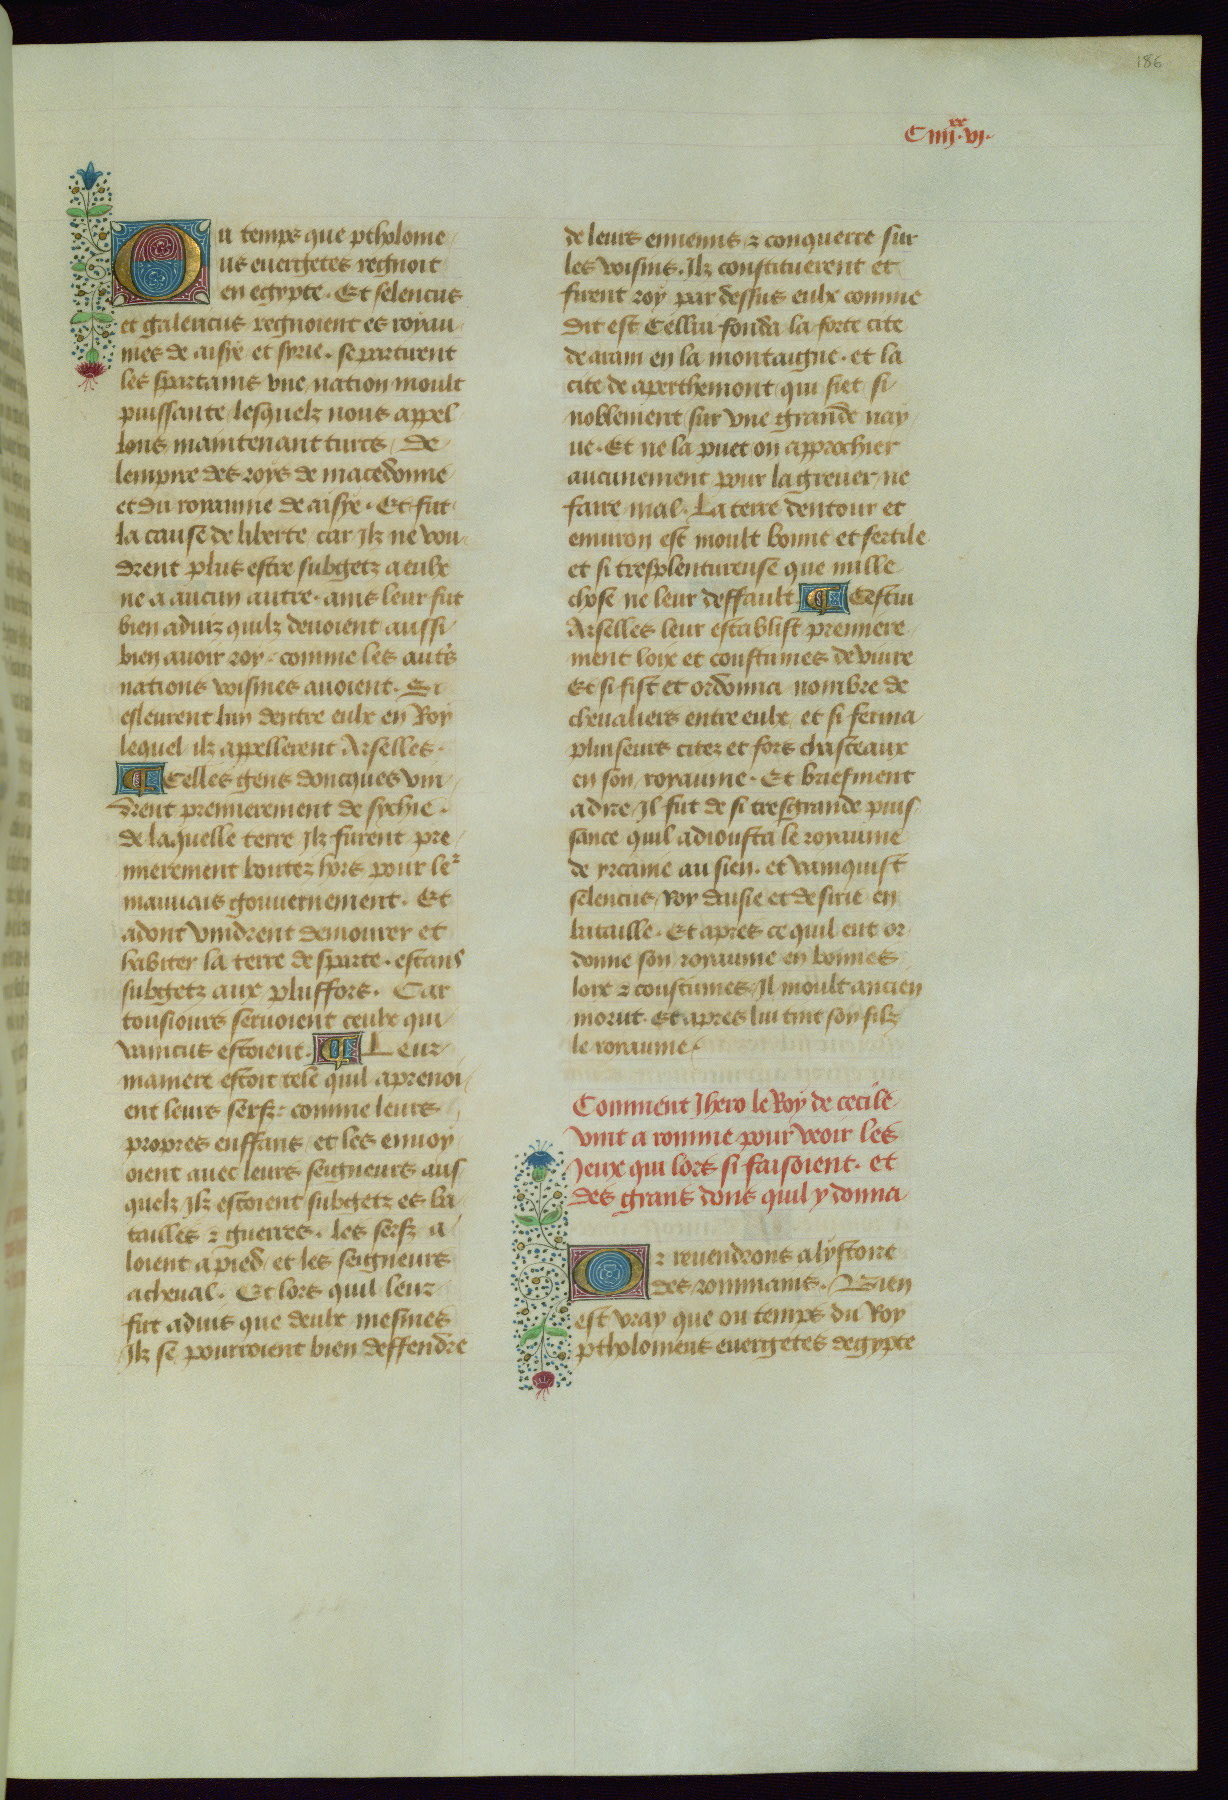 186
C iiij xx. vj.
Ou temps que ptholome
us euergetes regnoit
en egypte. Et seleucus
et galeucus regnoient es royau
mes de aisye et syrie. se partirent
les spartains vne nation moult
puissante lesquelz nous appel
lons maintenant turcs. De
lempire des roys de macedonne
et du royaume de aisye. Et fut
la cause de liberte car Ilz ne vou
drent plus estre subgetz a eulx
ne a aucun autre. ains leur fut
bien aduiz quilz deuoient aussi
bien auoir roy. comme les autrs
nations voisines auoient. Si
esleurent lun dentre eulx en Roy
lequel ilz appellerent Arselles.
Celles gens doncques vin
drent premierement de sychie.
de laquelle terre Ilz furent pre
mierement boutez hors pour ler
mauuais gouuernement. Et
adont vindrent demourer et
habiter la terre de sparte. estans
subgetz aux plusfors. Car
tousiours seruoient ceulx qui
vaincus estoient. Leur
maniere estoit tele quil aprenoi
ent leurs serfz comme leurs
propres enffans et les enuoy
oient auec leurs seigneurs aus
quelz Ilz estoient subgetz es ba
tailles ⁊ guerres. les serfz a
loient a pied et les seigneurs
a cheual. Et lors quil leur
fut aduis que deulx mesmes
Ilz se pourroient bien deffendre
de leurs ennemis ⁊ conquerre sur
les voisins. Ilz constituerent et
firent roy par dessus eulx comme
dit est Cellui fonda la forte cite
de aram en la montaigne. et la
cite de aperthemont qui siet si
noblement sur vne grande nay
ue. Et ne la puet on approchier
aucunement pour la greuer ne
faire mal. La terre dentour et
enuiron est moult bonne et fertile
et si tresplentureuse que nulle
chose ne leur deffault. Cestui
Arselles leur establist premiere
ment loix et coustumes de viure
Et si fist et ordonna nombre de
cheualiers entre eulx et si ferma
pluiseurs citez et fors chasteaux
en son royaume. Et briefment
a dire Il fut de si tresgrande puis
sance quil adiousta le royaume
de yrcanie au sien. et vainquist
seleucus Roy daisie et de sirie en
bataille. Et apres ce quil eut or
donne son royaume en bonnes
loix ⁊ coustumes Il moult ancien
morut. Et apres lui tint son filz
le royaume.
Comment Ihero le Roy de cecile
vint a romme pour veoir les
Jeux qui lors si faisoient. et
des grans dons quil y donna
Or reuendrons a lystoire
des rommains. Bien
est vray que ou temps du Roy
ptholomeus euergetes degypte